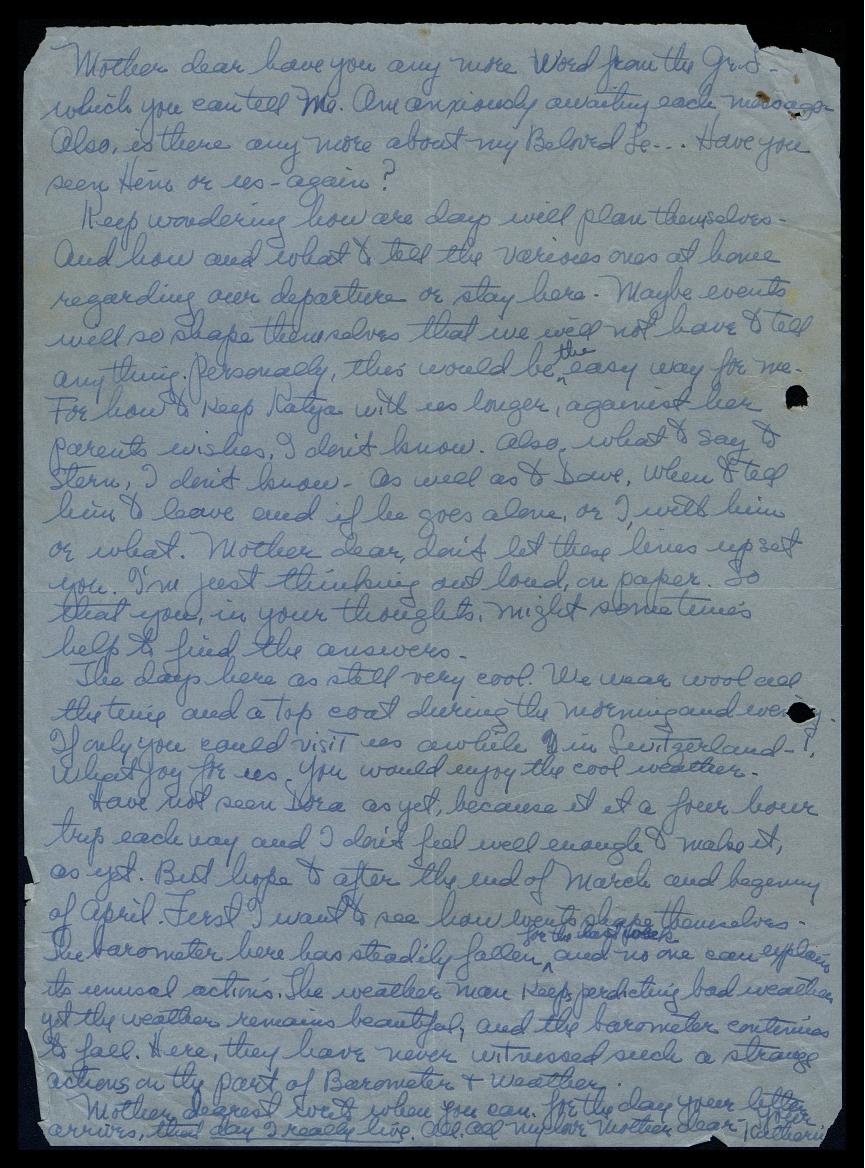 Mother dear have you any more Word from the Gr. S-
which you can tell Me. Am anxiously awaiting each message
Also, is there any more about my Beloved Le... Have you
seen Him or us - again?
Keep wondering how are days will plan themselves-
And how and what to tell the various ones at home
regarding our departure or stay here. Maybe events
will so shape themselves that we will not have to tell
anything. Personally, this would be the easy way for me-
For how to keep Katya with us longer, against her
parents wishes, I don't know. Also, what to say to
Stern, I don't know- As well as to Dave, when to tell
him to leave and if he goes alone, or I, with him
or what. Mother dear, don't let these lines upset
you. I'm just thinking out loud, on paper. So
that you, in your thoughts, might sometimes
help to find the answers-
The days here as still very cool. We wear wool all
the time and a top coat during the morning and evening.
If only you could visit us awhile in Switzerland-!,
What joy for us. You would enjoy the cool weather-
Have not seen Dora as yet, because it it a four hour
trip each way and I don't feel well enough to make it,
as yet. But hope to after the end of March and begenny
of April. First I want to see how events shape themselves-
The barometer here has steadily fallen for the last week and no one can explain
its unusal actions. The weather man keeps perdicting bad weather,
yet the weather remains beautiful, and the barometer continues
to fall. Here, they have never witnessed such a strange
actions on the part of Barometer + Weather.
Mother dearest write when you can. for the day your letter
arrives, that day I really live. All, all my love Mother dear, your Katherin